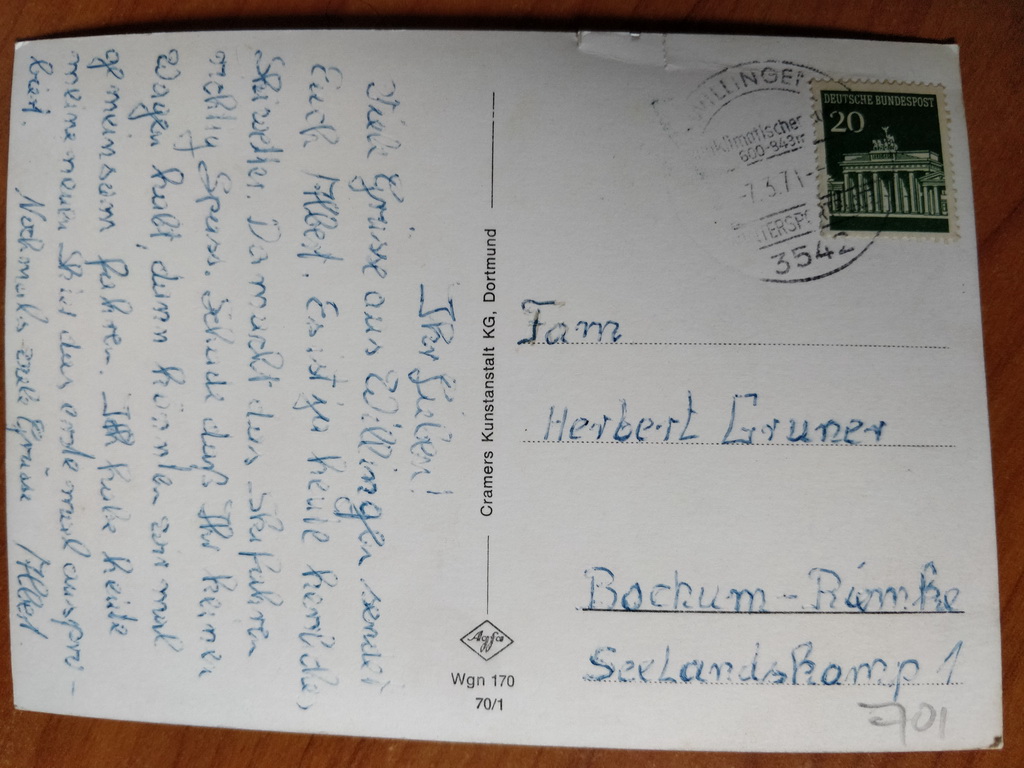 Ihr Lieben!
Viele Grüsse aus Willingen sendet
Euch Albert. Es ist ja heute herrliches
Skiwetter. Da macht das Skifahren
richtig Spass. Schade daß Ihr keinen
Wagen habt, dann könnten wir mal
gemeinsam fahren. Ich habe heute
meine neuen Ski das erste mal auspro-
biert. Nochmals viele Grüsse Albert
Cramers Kunstanstalt KG, Dortmund
Agfa
Wgn 170
70/1
WILLINGEN
Klimatischer
600-843m
7.3.71
3542
DEUTSCHE BUNDESPOST
20
Fam
Herbert Gruner
Bochum-Riemke
Seelandskamp 1
701